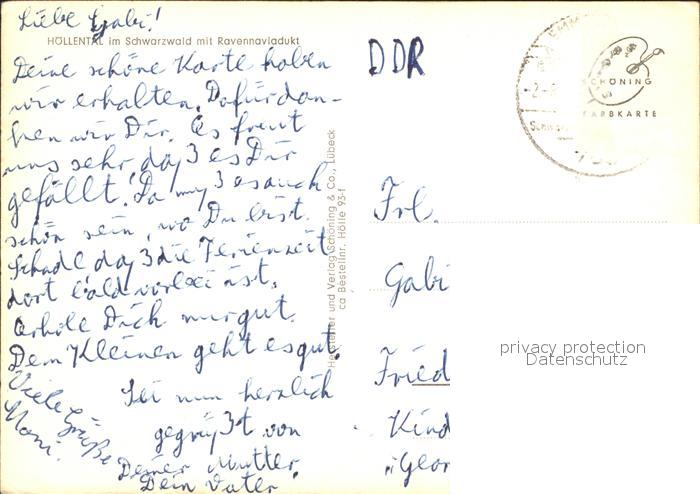 Liebe Gabi!
HÖLLENTAL im Schwarzwald mit Ravennaviadukt
Deine schöne Karte haben
wir erhalten. Dafür dan-
ken wir Dir. Es freut
uns sehr, daß es Dir
gefällt. Da muß es auch
schön sein, wo Du bist.
Schade daß die Ferienzeit
dort bald vorbei ist.
Erhole Dich nur gut.
Dem Kleinen geht es gut.
Sei nun herzlich
gegrüßt von
Deiner Mutter.
Dein Vater.
Viele Grüße
Moni.
Hersteller und Verlag Schöning & Co., Lübeck
ca Bestellnr. Hölle 93-f
DDR
SCHÖNING
FARBKARTE
Frl.
Gabi
Fried
Kind
"Geor
privacy protection
Datenschutz